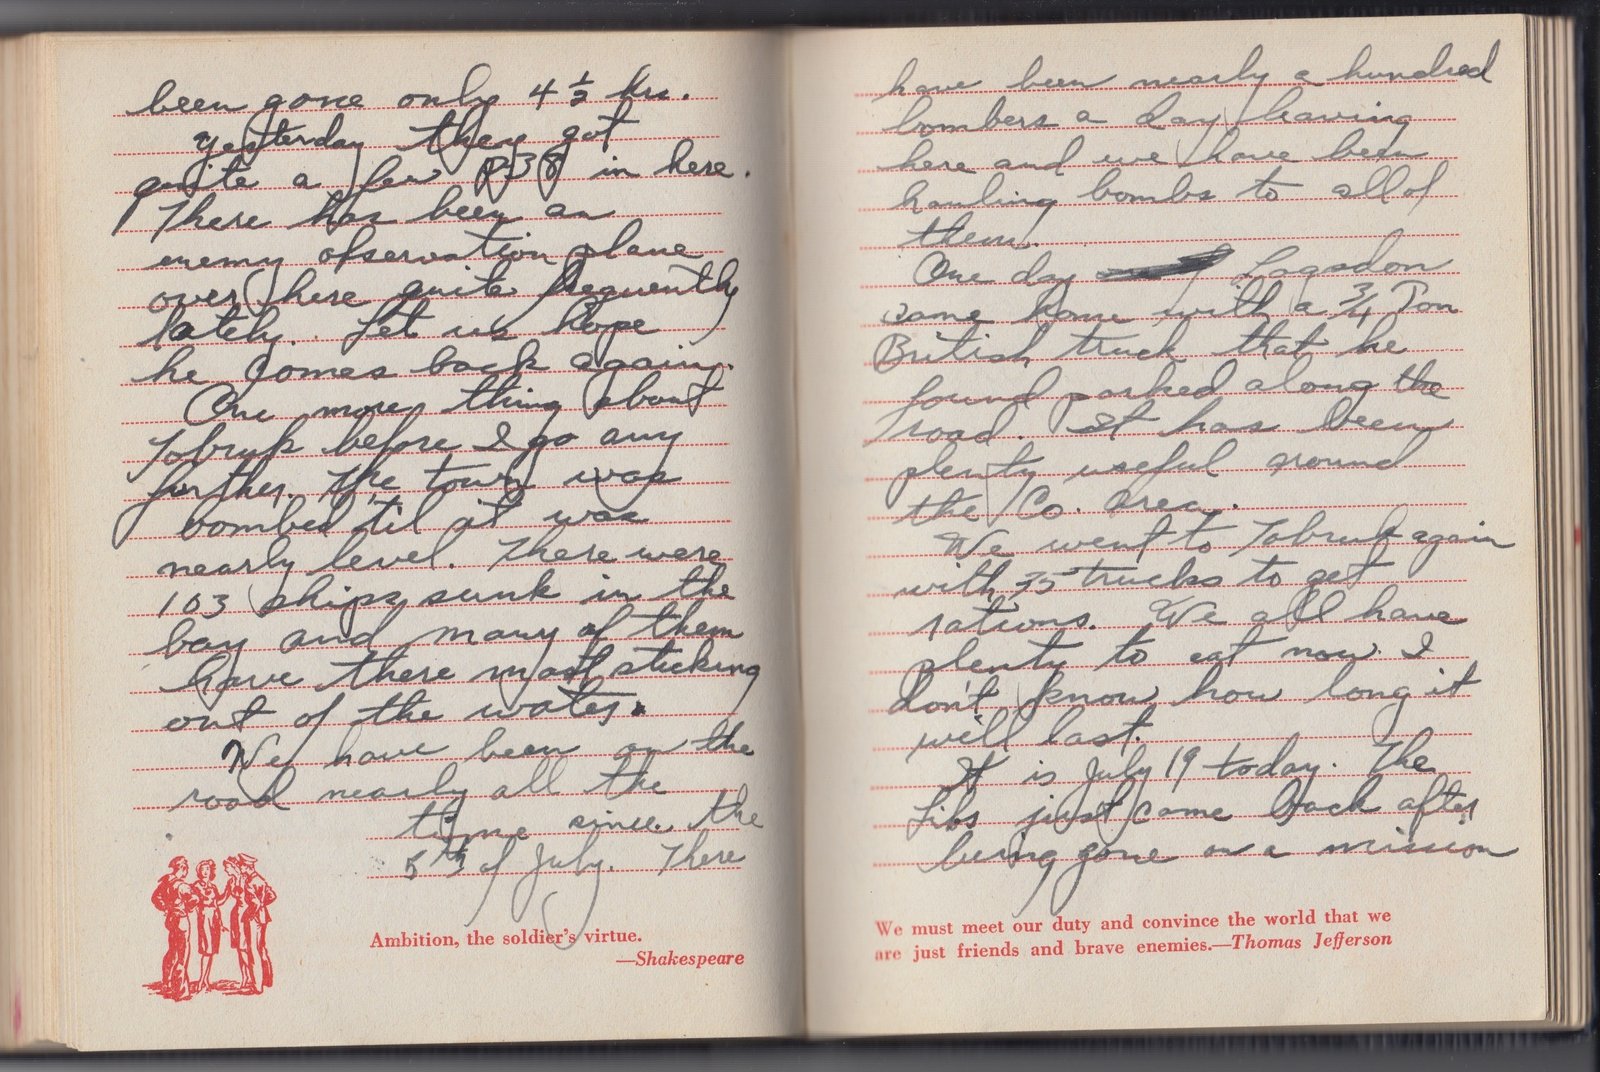 been gone only 4 ½ hrs.
yesterday they got
quite a few P38 in here.
There has been an
enemy observation plane
over here quite frequently
lately. Let us hope
he comes back again.
One more thing about
Tobruk before I go any
further. The town was
bombed 'til it was
nearly level. There were
103 ships sunk in the
bay and many of them
have there mast sticking
out of the water.
We have been on the
road nearly all the
time since the
5th of July. There
Ambition, the soldier's virtue.
—Shakespeare
have been nearly a hundred
bombers a day leaving
here and we have been
hauling bombs to all of
them.
One day Lagsdon
came home with a 3/4 Ton
British truck that he
found parked along the
road. It has been
plenty useful around
the Co. area.
We went to Tobruk again
with 35 trucks to get
rations. We all have
plenty to eat now. I
don't know how long it
will last.
It is July 19 today. The
Libs just came back after
being gone on a mission
We must meet our duty and convince the world that we
are just friends and brave enemies.—Thomas Jefferson